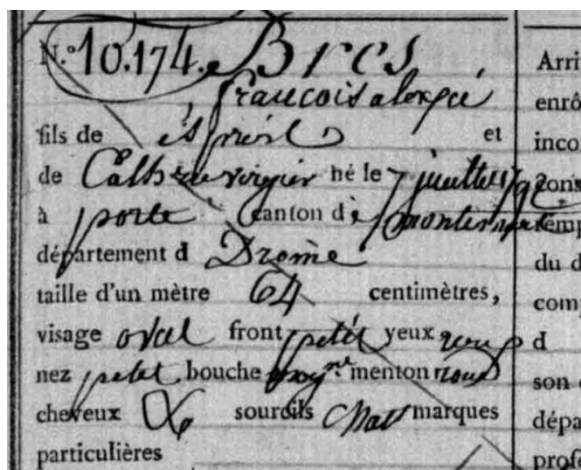 N.° 10.174. Bres
françois alexçé
fils de ésprit et
de Cath.ne virgier né le 7 juillet
à porte canton de
département d Drome
taille d'un mètre 64 centimètres,
visage oval front petit yeux roux
nez petit bouche moy.ne menton rond
cheveux & sourcils chat marques
particulières
Arri
enrô
inco
du d
com
d
son
dépa
profe